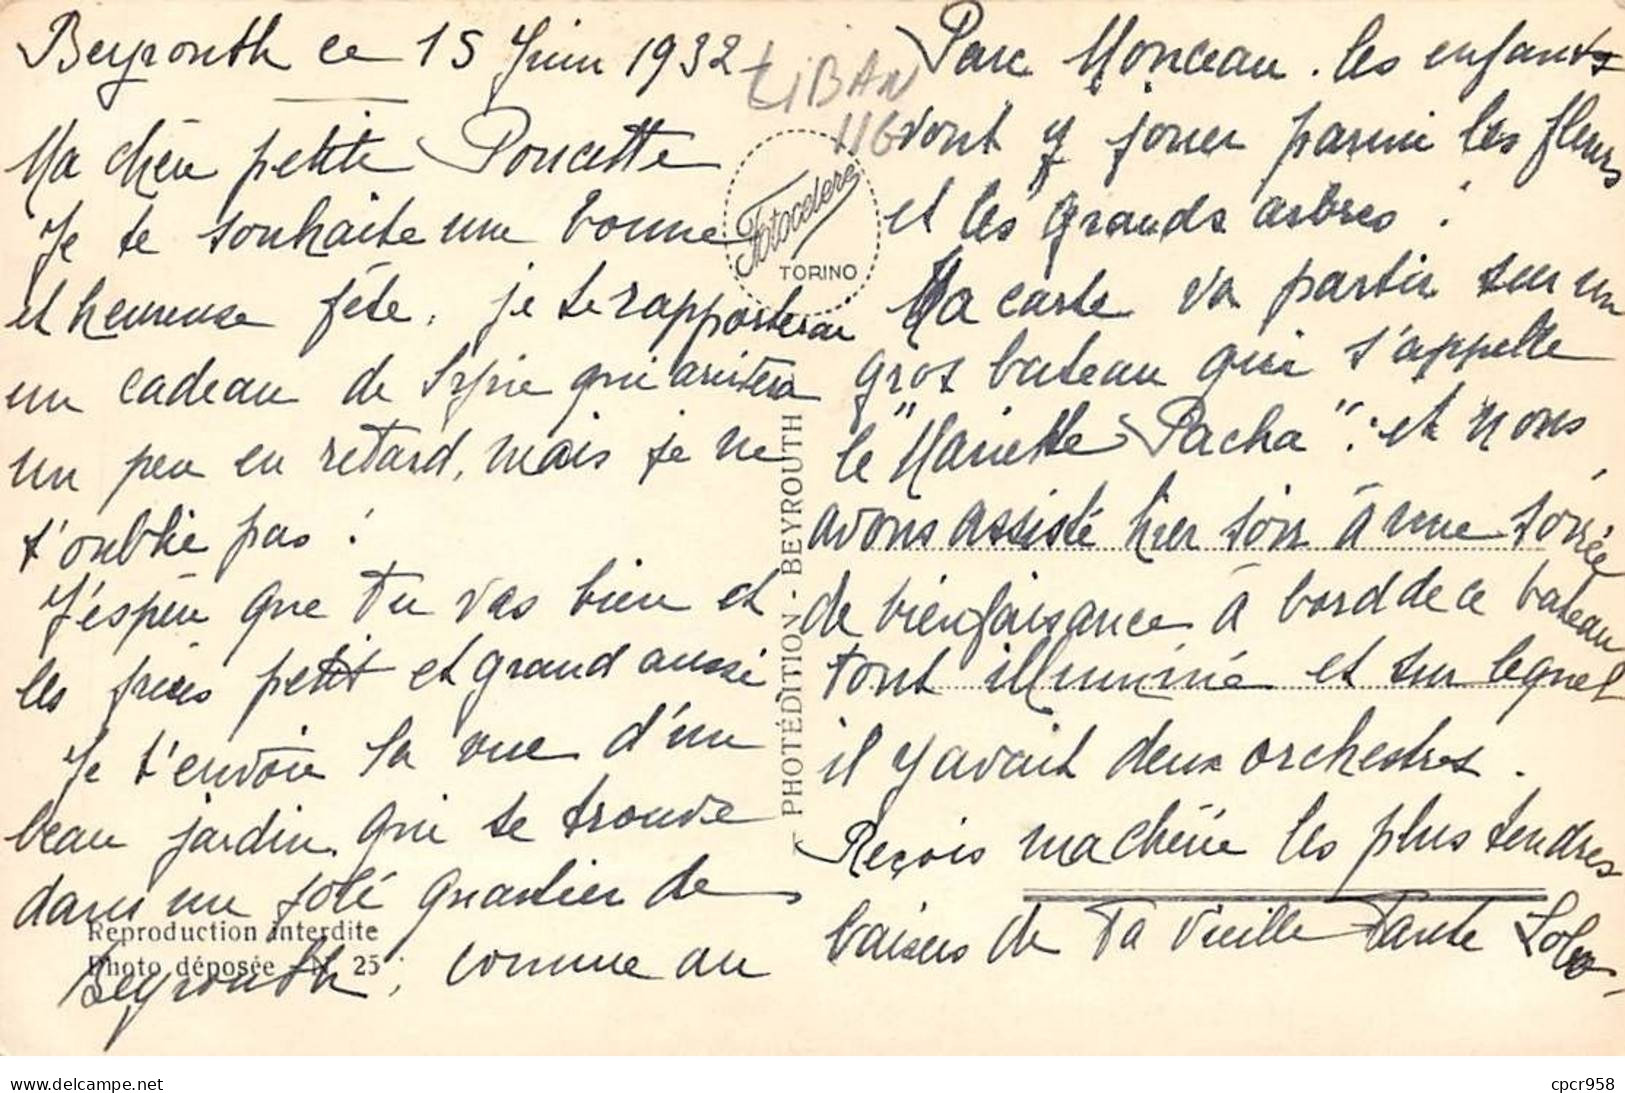 Beyrouth ce 15 Juin 1932
Ma chère petite Poucette
Je te souhaite une bonne
et heureuse fête, je te rapporterai
un cadeau de Syrie qui arrivera
un peu en retard, mais je ne
t'oublie pas !
J'espère que tu vas bien et
les frères petit et grand aussi
Je t'envoie la vue d'un
beau jardin qui se trouve
dans un joli quartier de
Beyrouth, comme au
Reproduction interdite
Photo déposée - N. 25
LIBAN
116
Fotocelere
TORINO
PHOTÉDITION - BEYROUTH
Parc Monceau. les enfants
vont y jouer parmi les fleurs
et les grands arbres !
Ma carte va partir sur un
gros bateau qui s'appelle
le "Mariette Pacha". et nous
avons assisté hier soir à une soirée
de bienfaisance à bord de ce bateau
tout illuminé et sur lequel
il y avait deux orchestres.
Reçois ma chérie les plus tendres
baisers de ta vieille Tante
delcampe.net
cpcr958